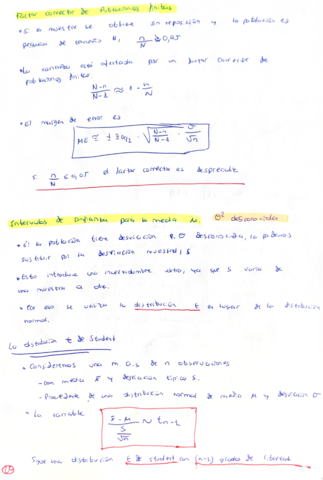 Factor corrector de Poblaciones finitas
• Si la muestra se obtiene sin reposición y la población es
pequeña de tamaño N,
• La varianza está afectada por un factor corrector de
poblaciones finitas
N-n / N-1 ≈ 1 - n/N
• El margen de error es
ME ≅ ± z α/2 · √(N-n / N-1) · σ/√n
Si n/N ≤ 0,05 el factor corrector es despreciable
Intervalos de confianza para la media, μ. σ² desconocida
• Si la población tiene desviación σ desconocida, la podemos
sustituir por la desviación muestral, s
• Esto introduce una incertidumbre extra, ya que s varía de
una muestra a otra.
• Por eso se utiliza la distribución t en lugar de la distribución
normal.
La distribución t de Student
• Consideremos una m.a.s de n observaciones
- con media x̄ y desviación típica s.
- Procedente de una distribución normal de media μ y desviación σ
• La variable
x̄ - μ / (s/√n) ~ tn-1
Sigue una distribución t de student con (n-1) grados de libertad.